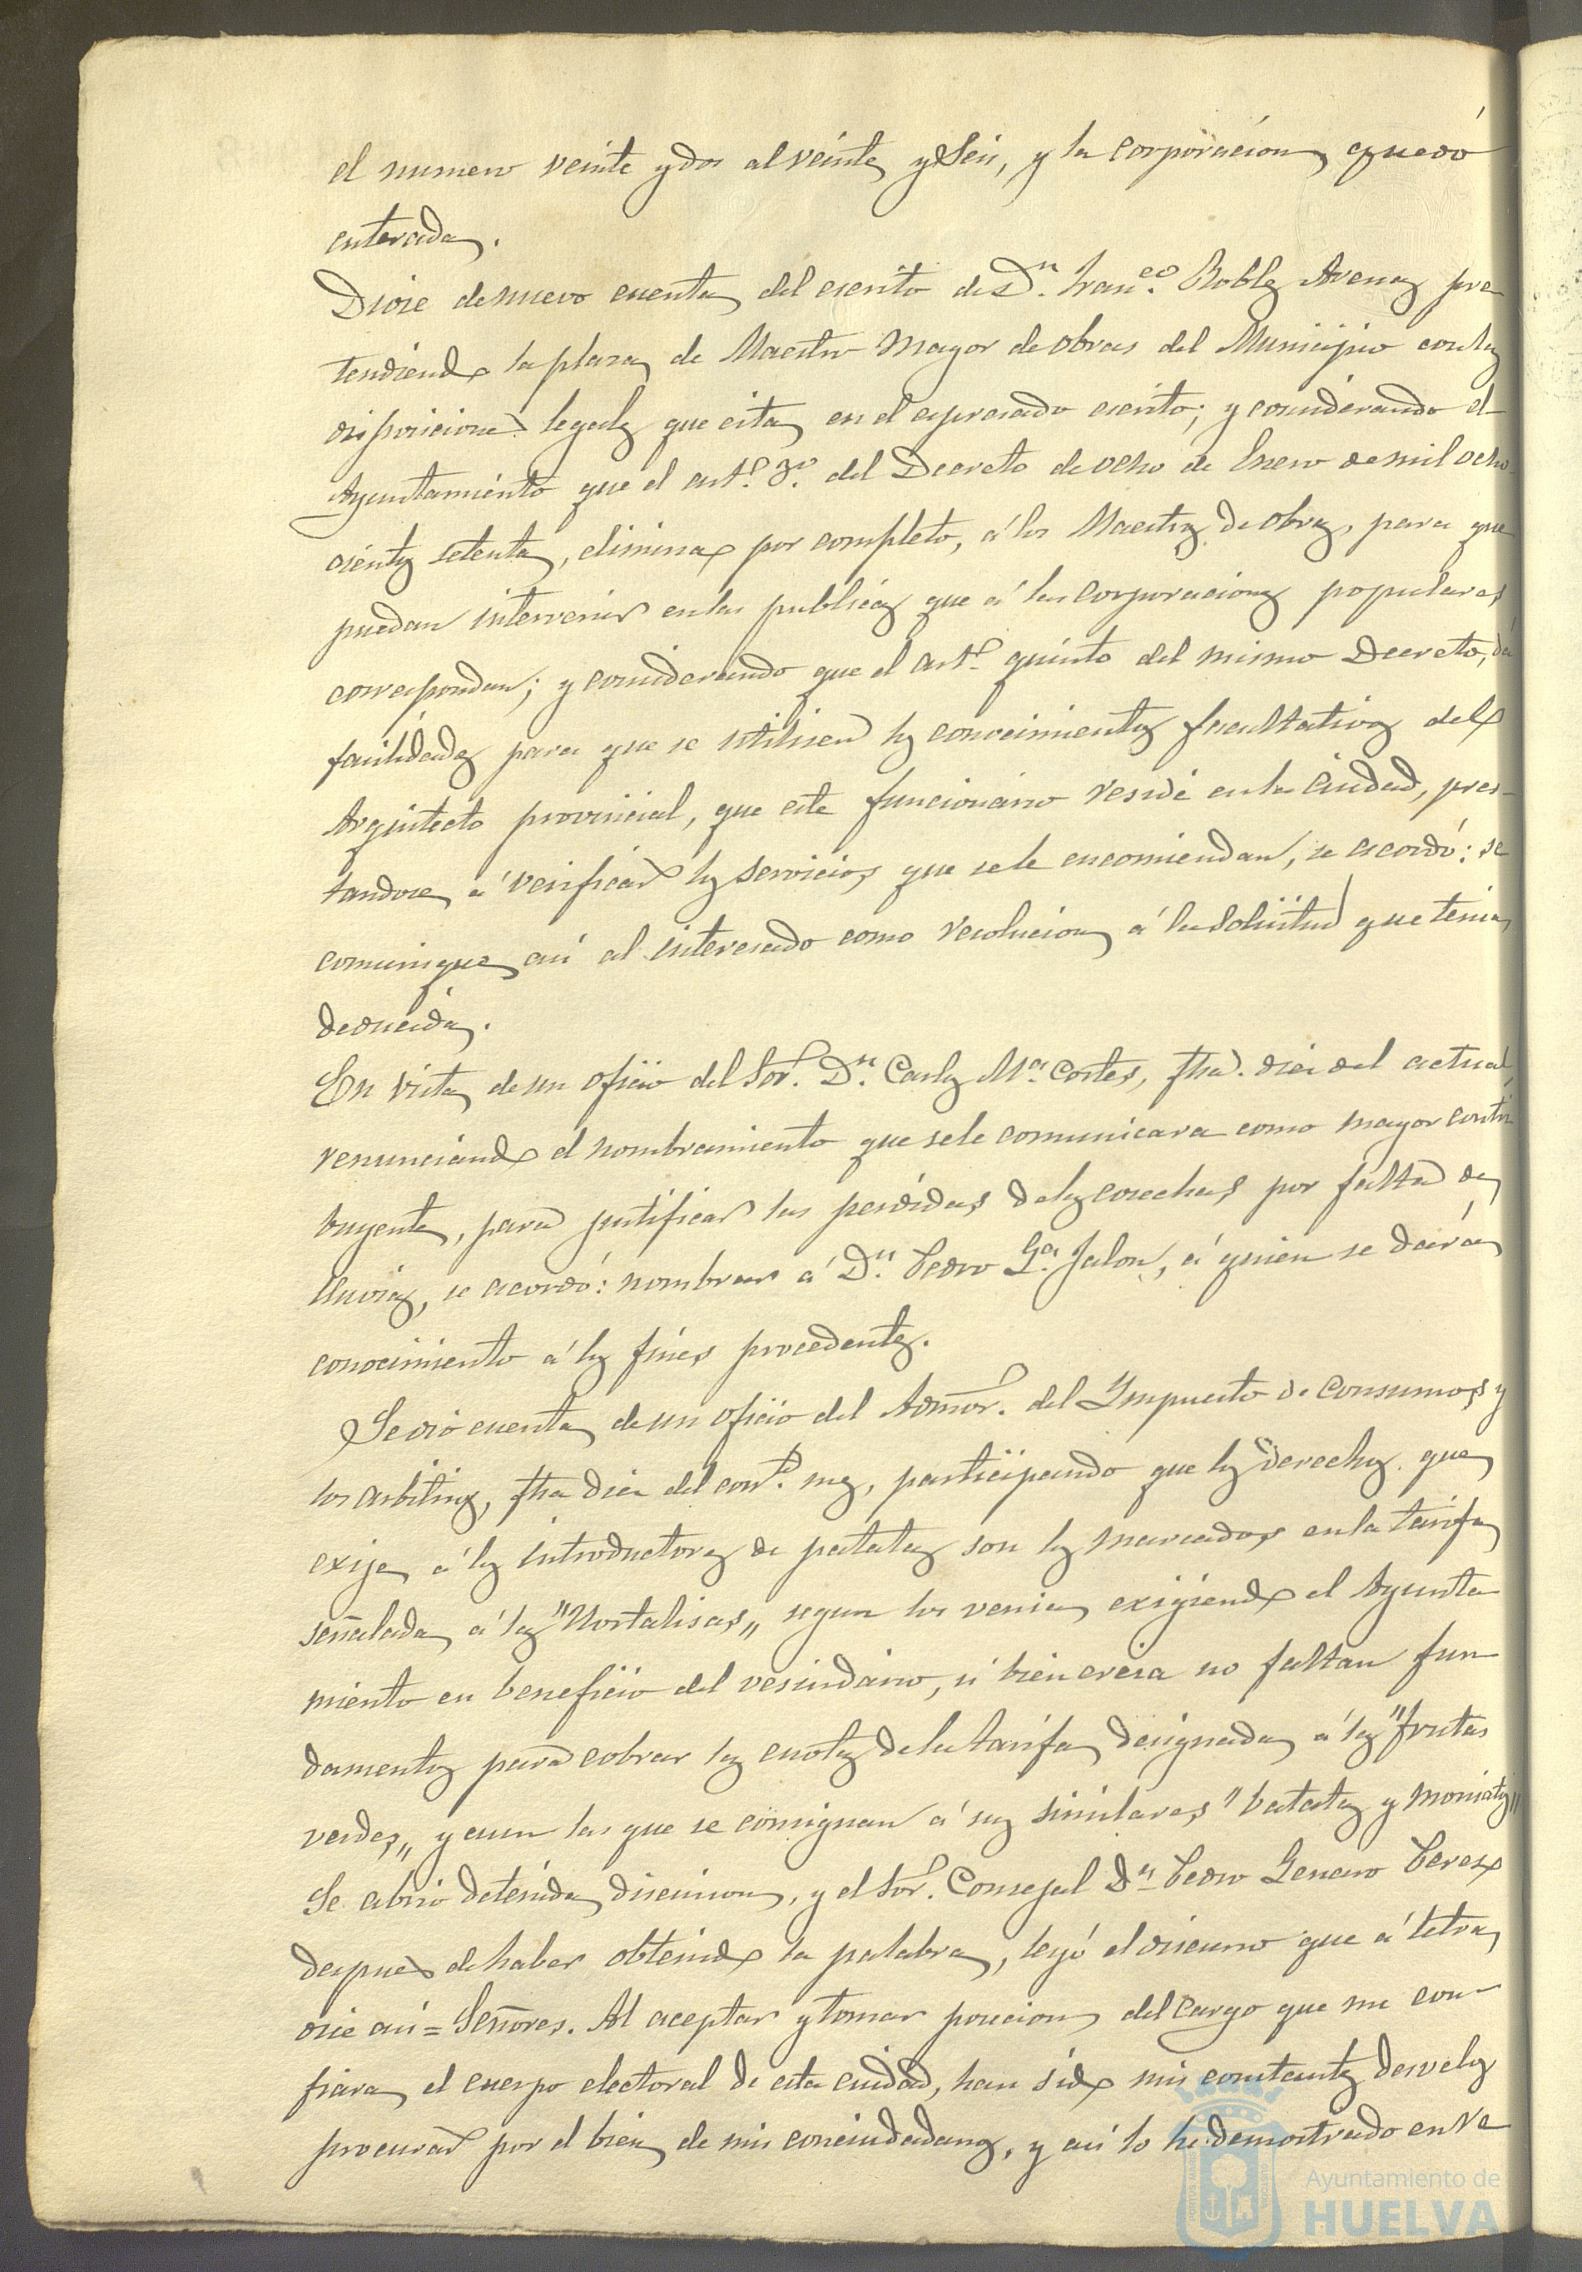 el numero veinte y dos al veinte y Seis, y la corporacion quedó
enterada.
Diose de nuevo cuenta del escrito de Dn. Franco. Robles Arenas pre
tendiendo la plaza de Maestro Mayor de obras del Municipio con las
disposiciones legales que cita en el espresado escrito; y considerando el
Ayuntamiento que el artº. 3º. del Decreto de ocho de Enero de mil ocho
cientos setenta, elimina por completo, á los Maestros de obras, para que
puedan intervenir en las publicas que á las corporaciones populares
correspondan; y considerando que el artº. quinto del mismo Decreto, dá
facilidades para que se utilisen los conocimientos facultativos del
Arquitecto provincial, que este funcionario reside en la ciudad, pres-
tandose á verificar los servicios que se le encomiendan, se acordó: se
comunique asi al interesado como resolucion á la solicitud que tenia
deducida.
En vista de un oficio del Sor. Dn. Carlos Ma. Cortes, fha. diez del actual,
renunciando el nombramiento que se le comunicara como mayor contri
buyente, para justificar las perdidas de las cosechas por falta de
lluvias, se acordó: nombrar á Dn. Pedro Ga. Jalon, á quien se dará
conocimiento á los fines procedentes.
Se dió cuenta de un oficio del Admor. del Ympuesto de Consumos y
los arbitrios, fha diez del corte. mes, participando que los derechos que
exije á los introductores de patatas son los marcados en la tarifa
señalada á las "Hortalisas" segun los venia exigiendo el Ayunta
miento en beneficio del vesindario, si bien creia no faltan fun
damentos para cobrar las cuotas de la tarifa designada á las "frutas
verdes" y aun las que se consignan á sus similares "batatas y Moniatos"
Se abrió detenida discusion, y el Sor. Consejal Dn. Pedro Genaro Perez
despues de haber obtenido la palabra, leyó el discurso que á letra
dice asi = Señores. Al aceptar y tomar posecion del cargo que me con-
fiara el cuerpo electoral de esta ciudad, han sido mis constantes desvelos
procurar por el bien de mis conciudadanos, y asi lo he demostrado en re
Ayuntamiento de
HUELVA